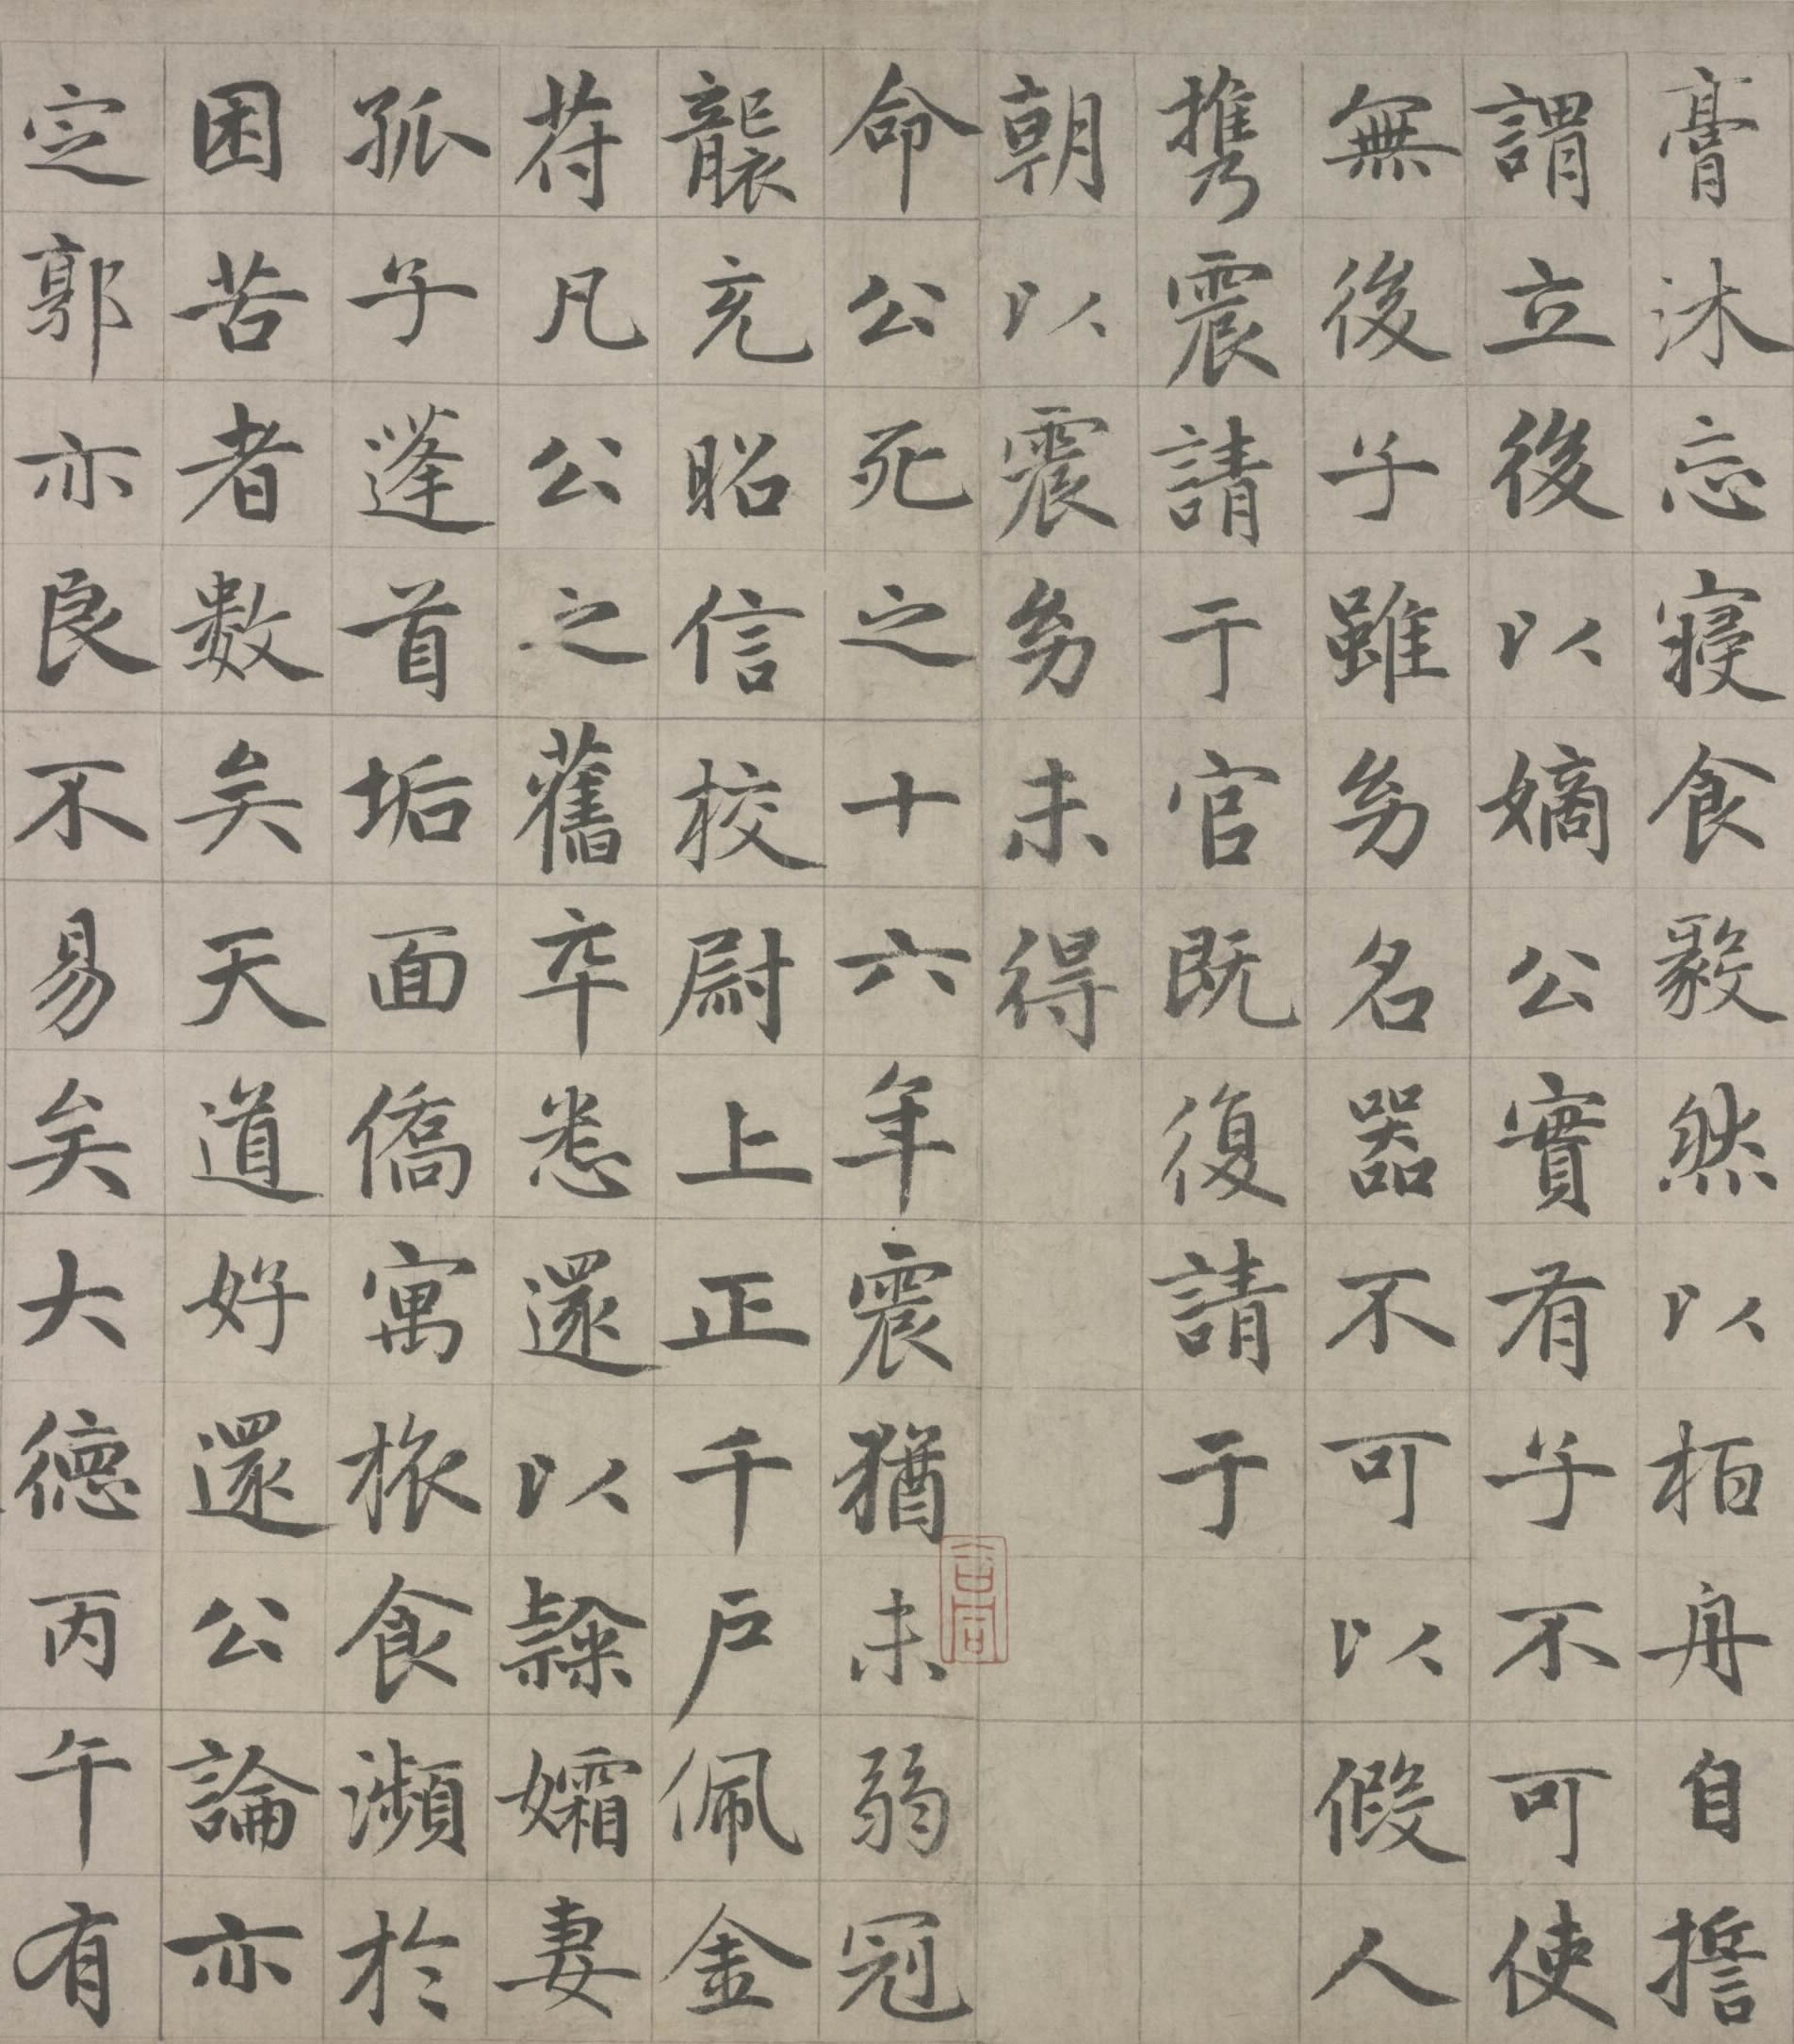 膏沐忘寝食毅然以栢舟自擔
謂立後以嫡公實有子不可使
無後子雖㓜名器不可以假人
携震請于官既復請于
朝以震㓜未得
命公死之十六年震猶未弱冠
襲充昭信校尉上正千戶佩金
符凡公之舊卒悉還以隸孀妻
孤子蓬首垢面僑寓旅食瀕於
困苦者数矣天道好還公論亦
定郭亦良不易矣大德丙午有